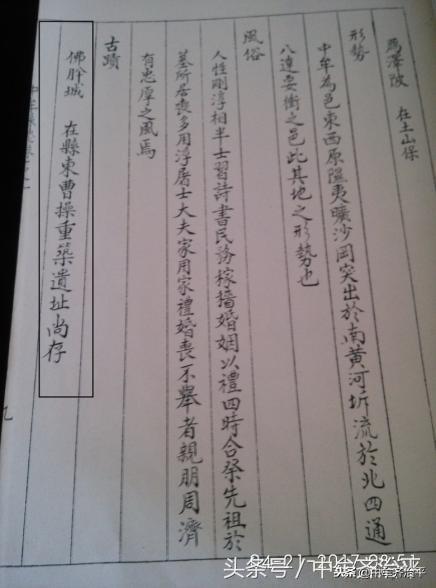 馬澤陂 在土山保
形勢
中牟為邑東西原隰夷曠沙岡突出於南黃河折流於北四通
八達要衝之邑此其地之形勢也
風俗
人性剛淳相半士習詩書民務稼穡婚姻以禮四時合祭先祖於
墓所居喪多用浮屠士大夫家用家禮婚喪不舉者親朋周濟
有忠厚之風焉
古蹟
佛肸城 在縣東曹操重築遺址尚存
九
04 21 2017
头条号 / 中牟齐治平